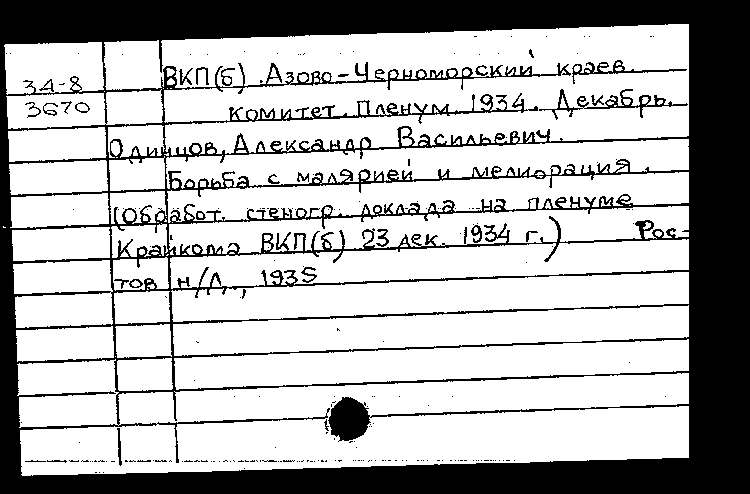 34-8
3670
ВКП(б). Азово-Черноморский краев.
комитет. Пленум 1934. Декабрь.
Одинцов, Александр Васильевич.
Борьба с малярией и мелиорация.
(Обработ. стеногр. доклада на пленуме
Крайкома ВКП(б) 23 дек. 1934 г.) Рос-
тов н/Д., 1935